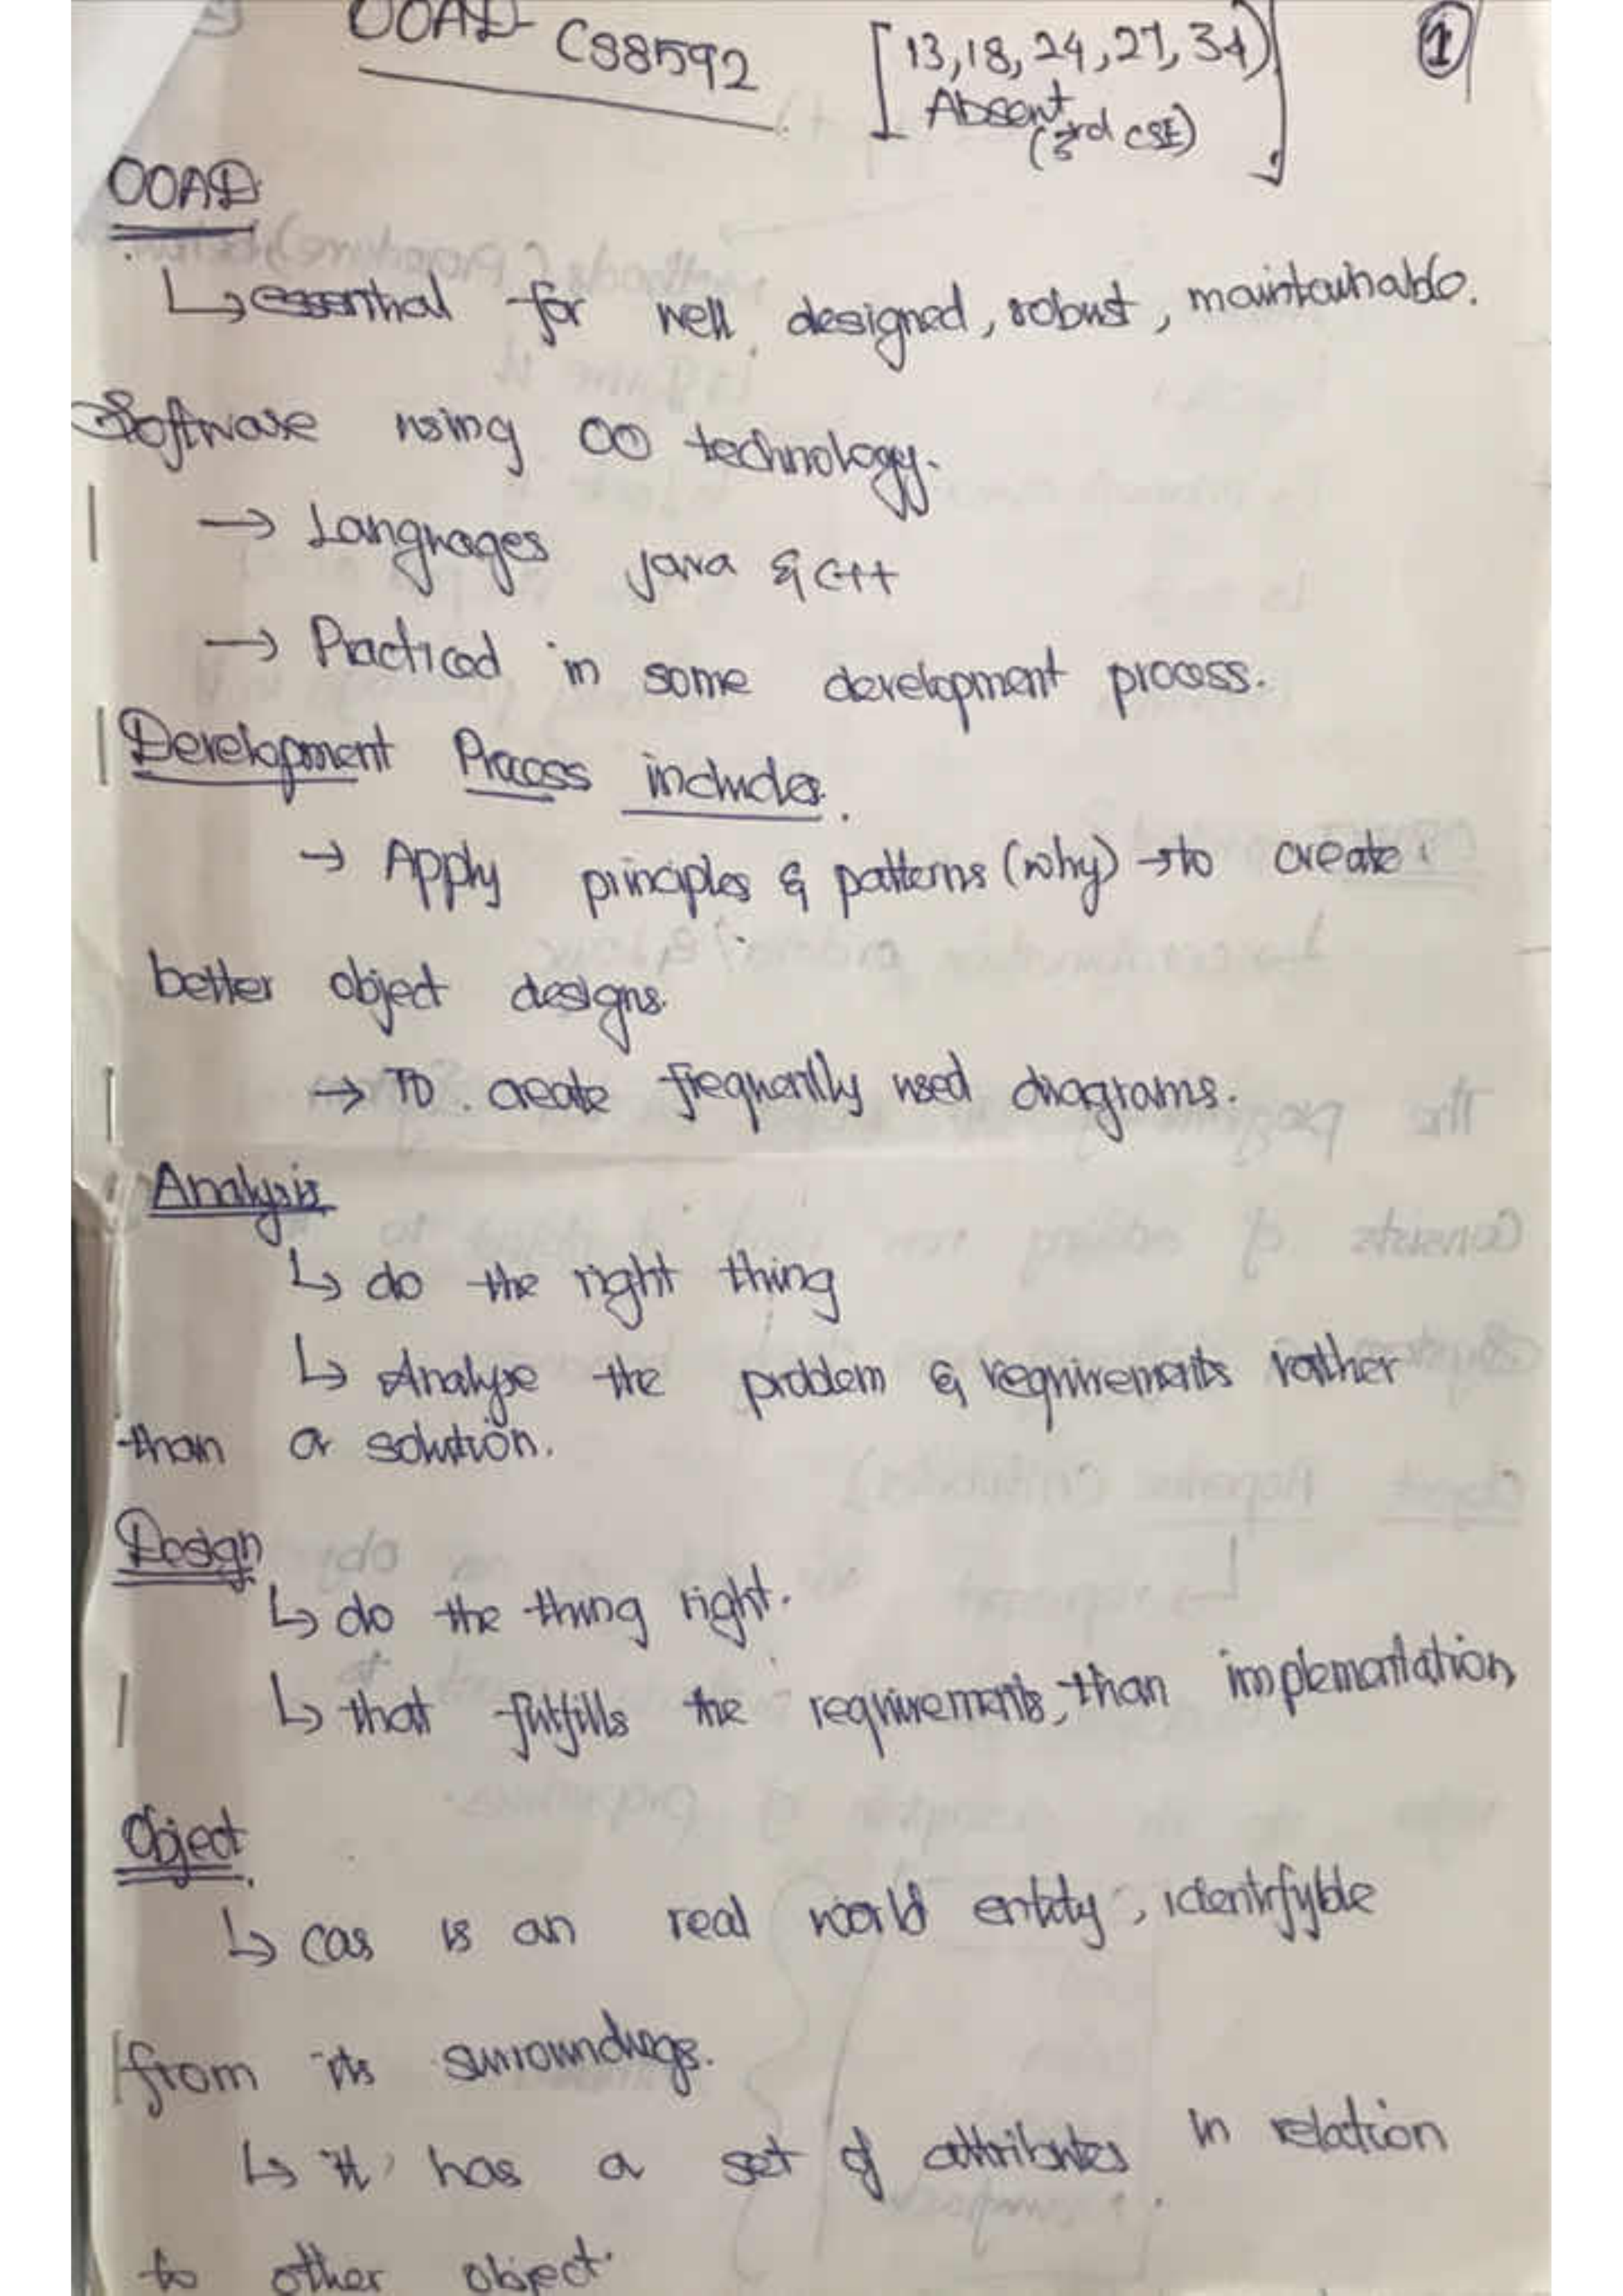 OOAD CS8592 [13,18,24,27,34)] ①
Absent
(3rd CSE)
OOAD
↳ essential for well designed, robust, maintainable.
Software using OO technology.
→ Languages java & C++
→ Practiced in some development process.
Development Process includes.
→ Apply principles & patterns (why) → to create
better object designs.
→ To create frequently used diagrams.
Analysis
↳ do the right thing
↳ Analyse the problem & requirements rather
than a solution.
Design
↳ do the thing right.
↳ that fulfills the requirements, than implementation,
Object
↳ cas is an real world entity, identifyble
from its surroundings.
↳ it has a set of attributes in relation
to other object.